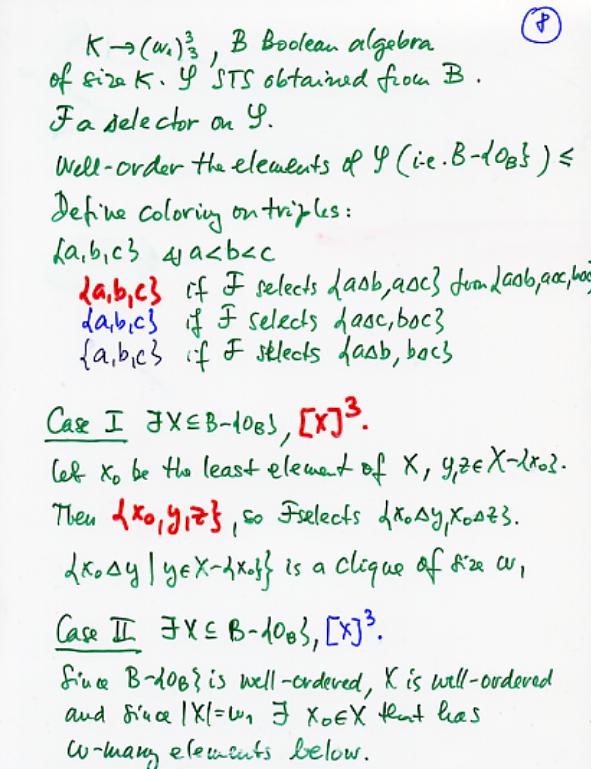 8
K → (ω₁)³₃ , B Boolean algebra
of size K. 𝒮 STS obtained from B.
F a selector on 𝒮.
Well-order the elements of 𝒮 (i.e. B-{0_B}) ≤
Define coloring on triples:
{a,b,c} a<b<c
{a,b,c} if F selects {aΔb, aΔc} from {aΔb, aΔc,
{a,b,c} if F selects {aΔc, bΔc}
{a,b,c} if F selects {aΔb, bΔc}
Case I ∃X⊆B-{0_B}, [X]³.
Let x₀ be the least element of X, y,z∈X-{x₀}.
Then {x₀,y,z}, so F selects {x₀Δy, x₀Δz}.
{x₀Δy | y∈X-{x₀}} is a clique of size ω₁
Case II ∃X⊆B-{0_B}, [X]³.
Since B-{0_B} is well-ordered, X is well-ordered
and since |X|=ω₁ ∃ x₀∈X that has
ω-many elements below.